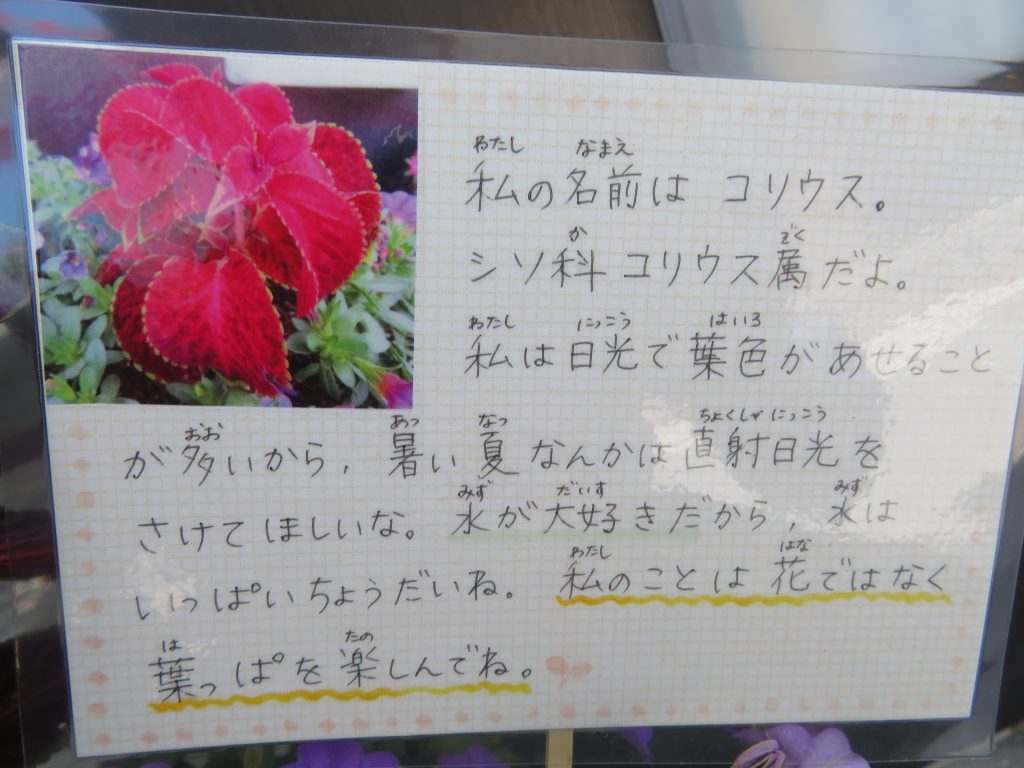 わたし なまえ
私の名前は コリウス。
か ぞく
シソ科 コリウス属だよ。
わたし にっこう はいろ
私は日光で葉色があせること
おお あつ なつ ちょくしゃにっこう
が多いから, 暑い夏なんかは直射日光を
みず だいす みず
さけてほしいな。水が大好きだから, 水は
わたし はな
いっぱいちょうだいね。 私のことは花ではなく
は たの
葉っぱを楽しんでね。